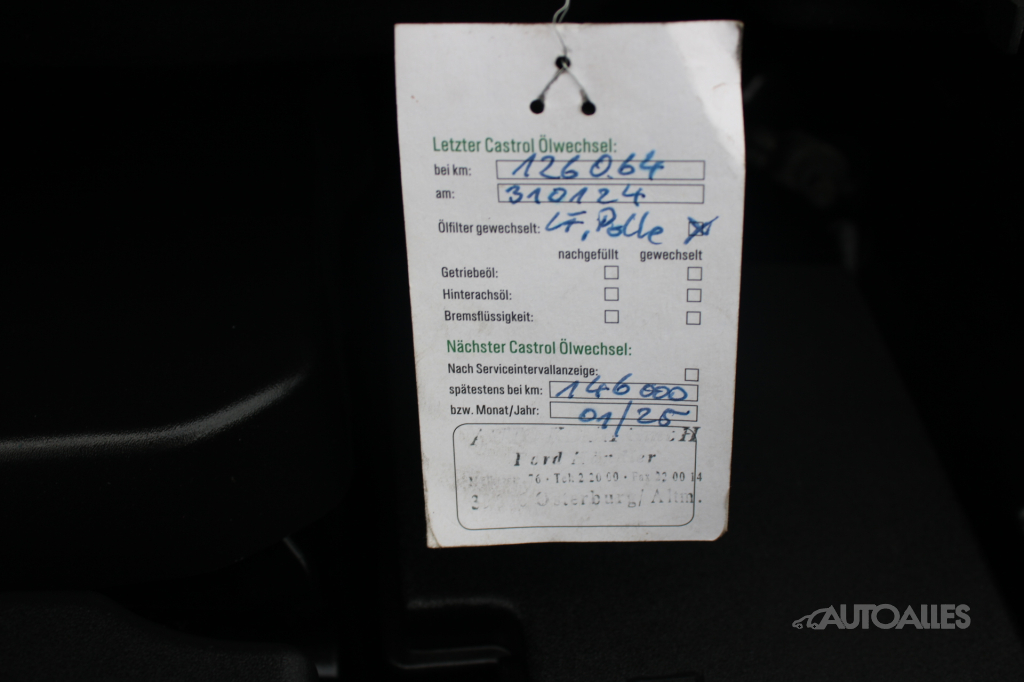 Letzter Castrol Ölwechsel:
bei km: 126064
am: 310124
Ölfilter gewechselt: LF, Polle
nachgefüllt gewechselt
Getriebeöl:
Hinterachsöl:
Bremsflüssigkeit:
Nächster Castrol Ölwechsel:
Nach Serviceintervallanzeige:
spätestens bei km: 146000
bzw. Monat/Jahr: 01/25
Ford
Tel. 2 20 00 · Fax 22 00 14
Osterburg/Altm.
AUTOALLES